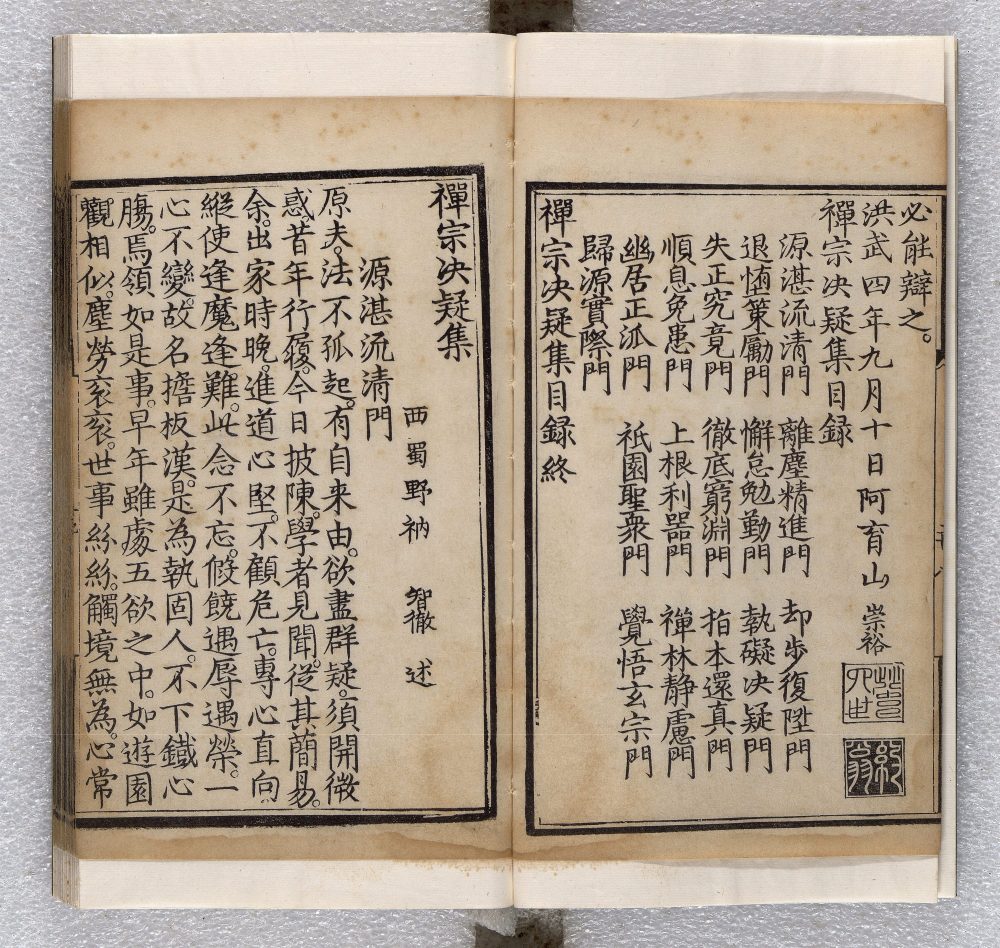 必能辯之。
洪武四年九月十日阿育山 崇裕
禪宗决疑集目録
源湛流清門 離塵精進門 却步復陞門
退墮策勵門 懈怠勉勤門 執礙决疑門
失正究竟門 徹底窮淵門 拍本還真門
順息免患門 上根利器門 禪林静慮門
幽居正派門 祇園聖衆門 覺悟玄宗門
歸源實際門
禪宗决疑集目録終
禪宗决疑集
西蜀野衲 智徹 述
源湛流清門
原夫。法不孤起。有自来由。欲盡群疑。須開微
惑。昔年行履。今日披陳。學者見聞。從其蕳易。
余。出家時晚。進道心堅。不顧危亡。專心直向
縱使逢魔逢難。此念不忘。饒遇辱遇榮。一
心不變。故名擔板漢。是為執固人。不下鐵心
膓。焉領如是事。早年雖處五欲之中。如遊園
觀相似。塵勞衮衮。世事絲絲。觸境無為。心常